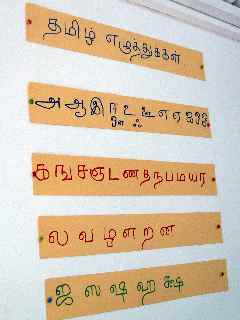 தமிழ் எழுத்துககள்
அ ஆ இ ஈ உ ஊ எ ஏ ஐ ஒ ஓ
ஔ ஃ
க ங ச ஞ ட ண த ந ப ம ய ர
ல வ ழ ள ற ன
ஜ ஸ ஷ ஹ க்ஷ